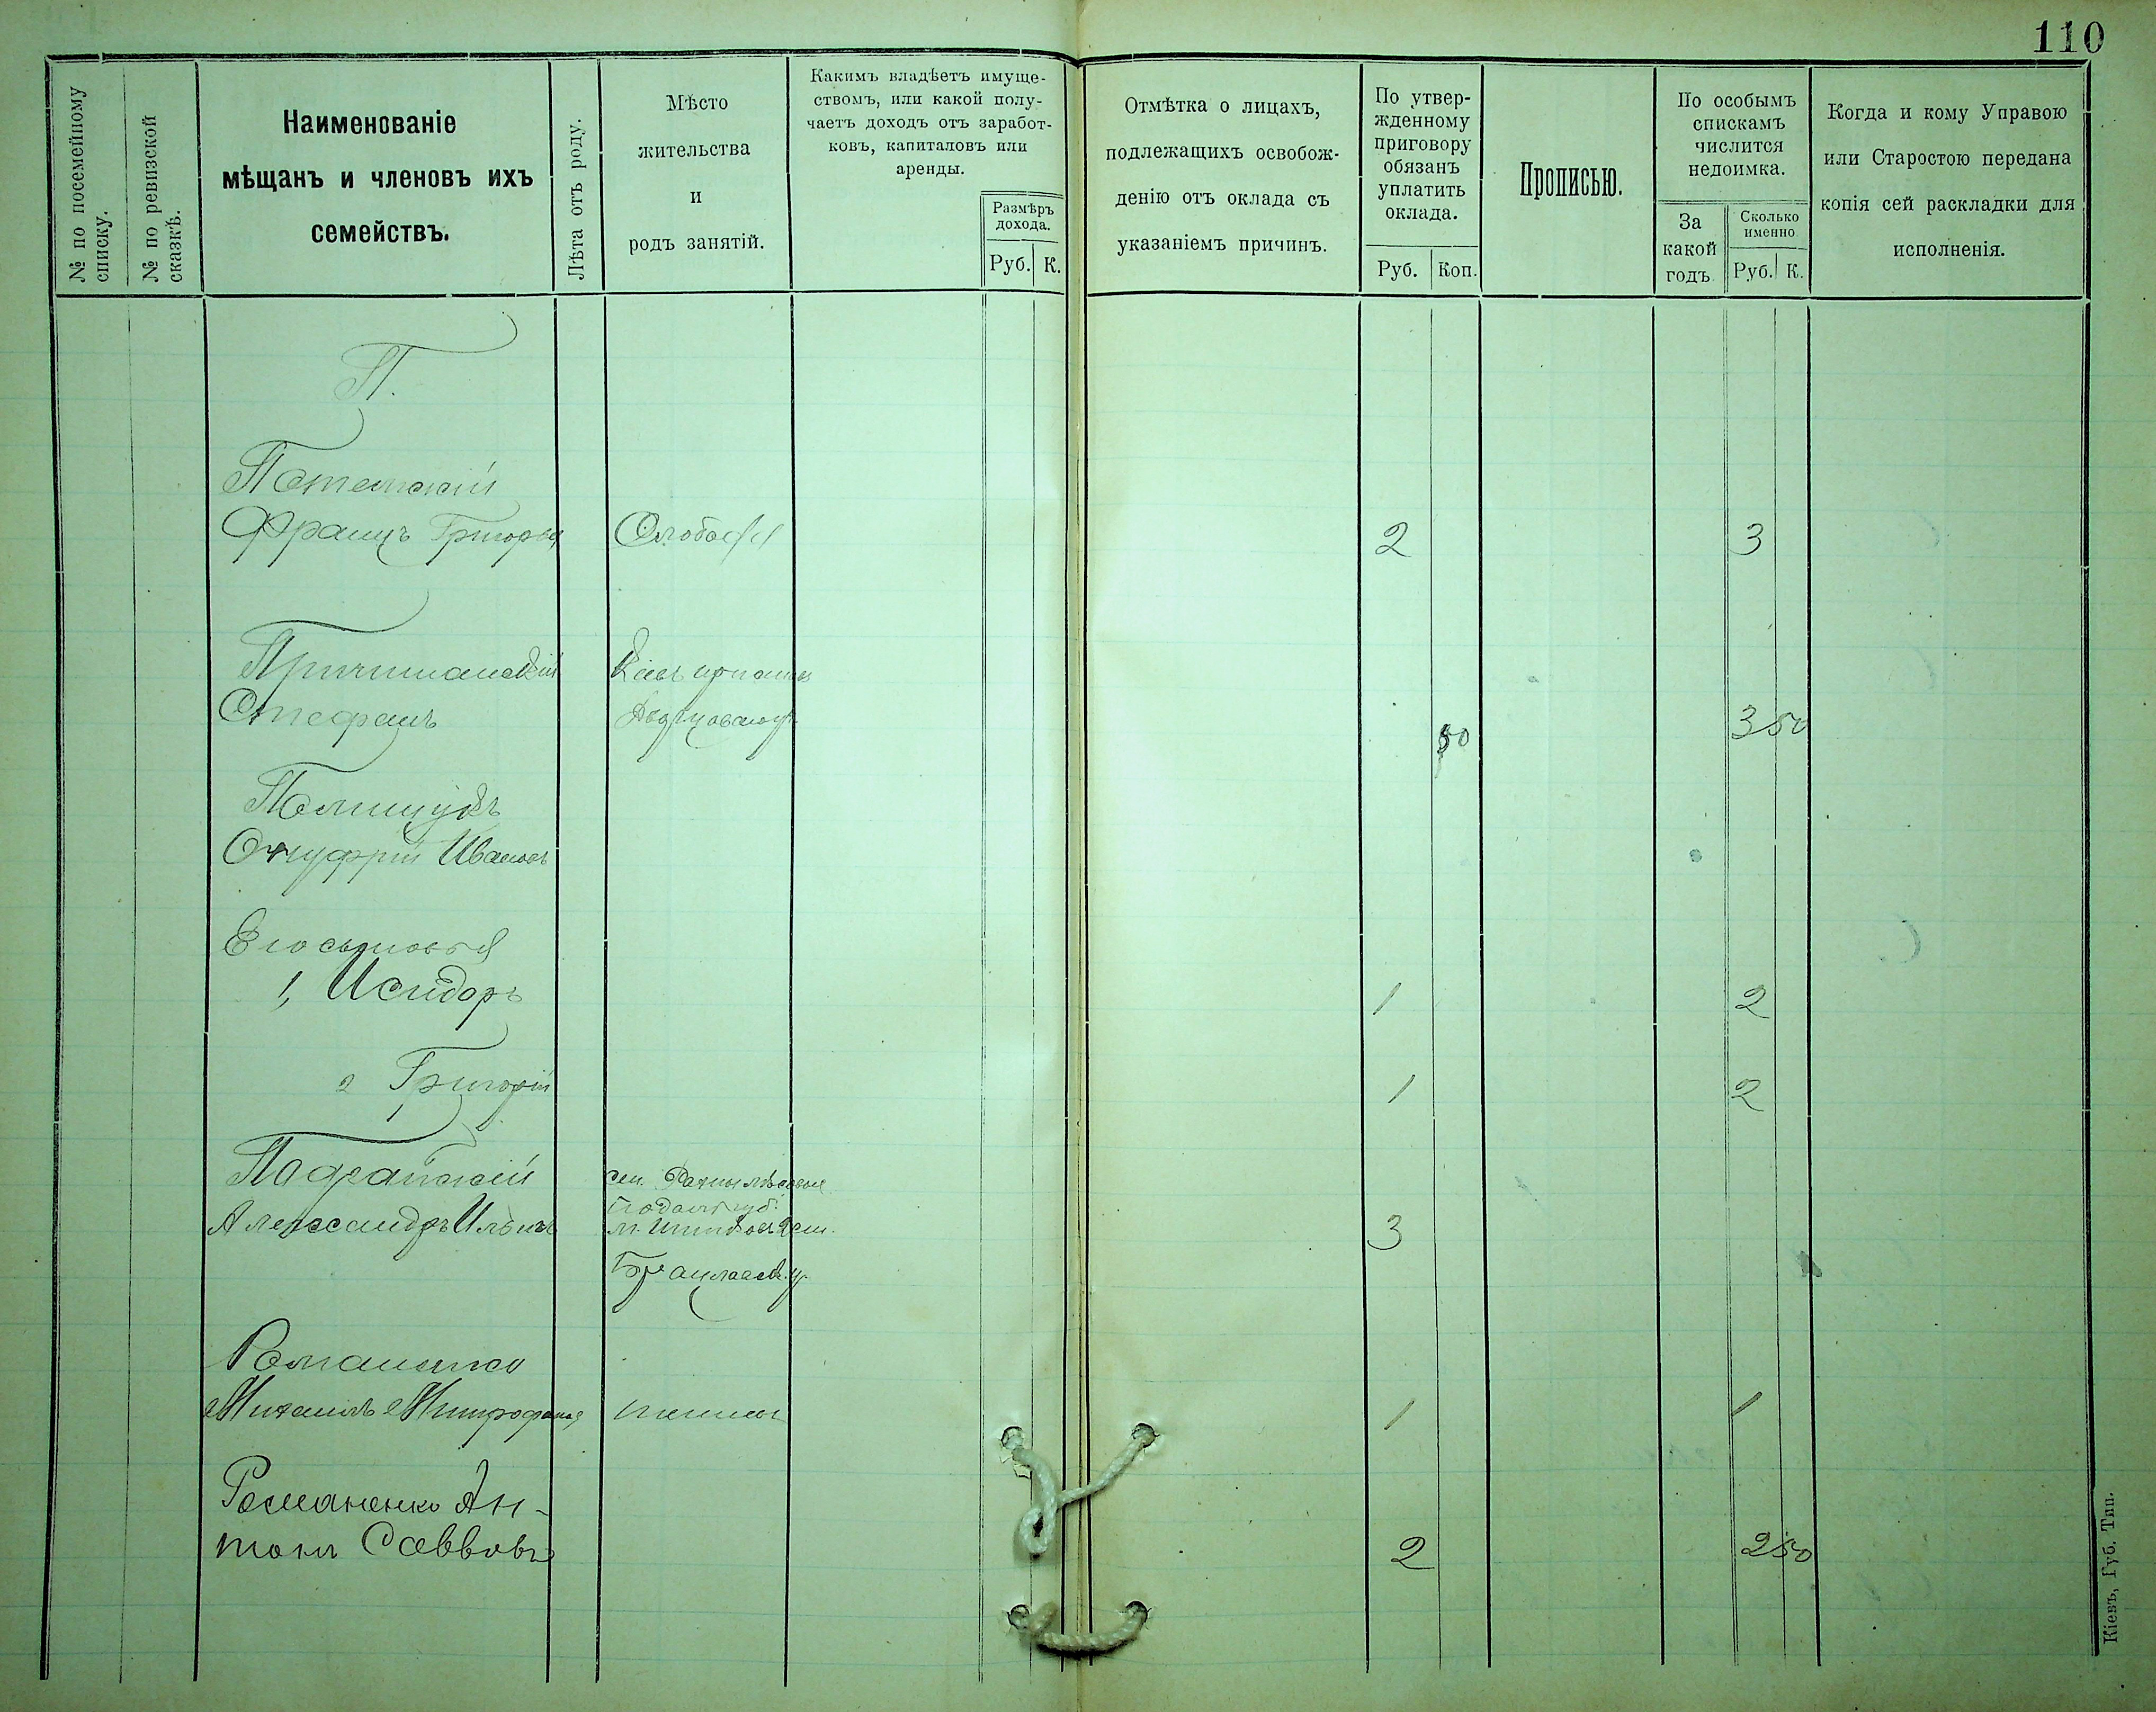 110
№ по посемейному
списку.
№ по ревизской
сказкѣ.
Наименованіе
мѣщанъ и членовъ ихъ
семействъ.
Лѣта отъ роду.
Мѣсто
жительства
и
родъ занятій.
Какимъ владѣетъ имуще-
ствомъ, или какой полу-
чаетъ доходъ отъ заработ-
ковъ, капиталовъ или
аренды.
Размѣръ
дохода.
Руб. К.
Отмѣтка о лицахъ,
подлежащихъ освобож-
денію отъ оклада съ
указаніемъ причинъ.
По утвер-
жденному
приговору
обязанъ
уплатить
оклада.
Руб. Коп.
Прописью.
По особымъ
спискамъ
числится
недоимка.
За
какой
годъ
Сколько
именно
Руб. К.
Когда и кому Управою
или Старостою передана
копія сей раскладки для
исполненія.
П.
Францъ Григорьев Слобода 2 3
Стефанъ 50 3 50
Полищукъ
Онуфрій Ивановъ
Его сыновья
1, Исидоръ 1 2
2 Григорій 1 2
Александръ Ильинъ 3
Подольск губ.
Брацлавск. у.
Романенко
Михаилъ Митрофанов 1 1
Романенко Ан-
тонъ Саввовъ 2 2 50
Кіевъ, Губ. Тип.